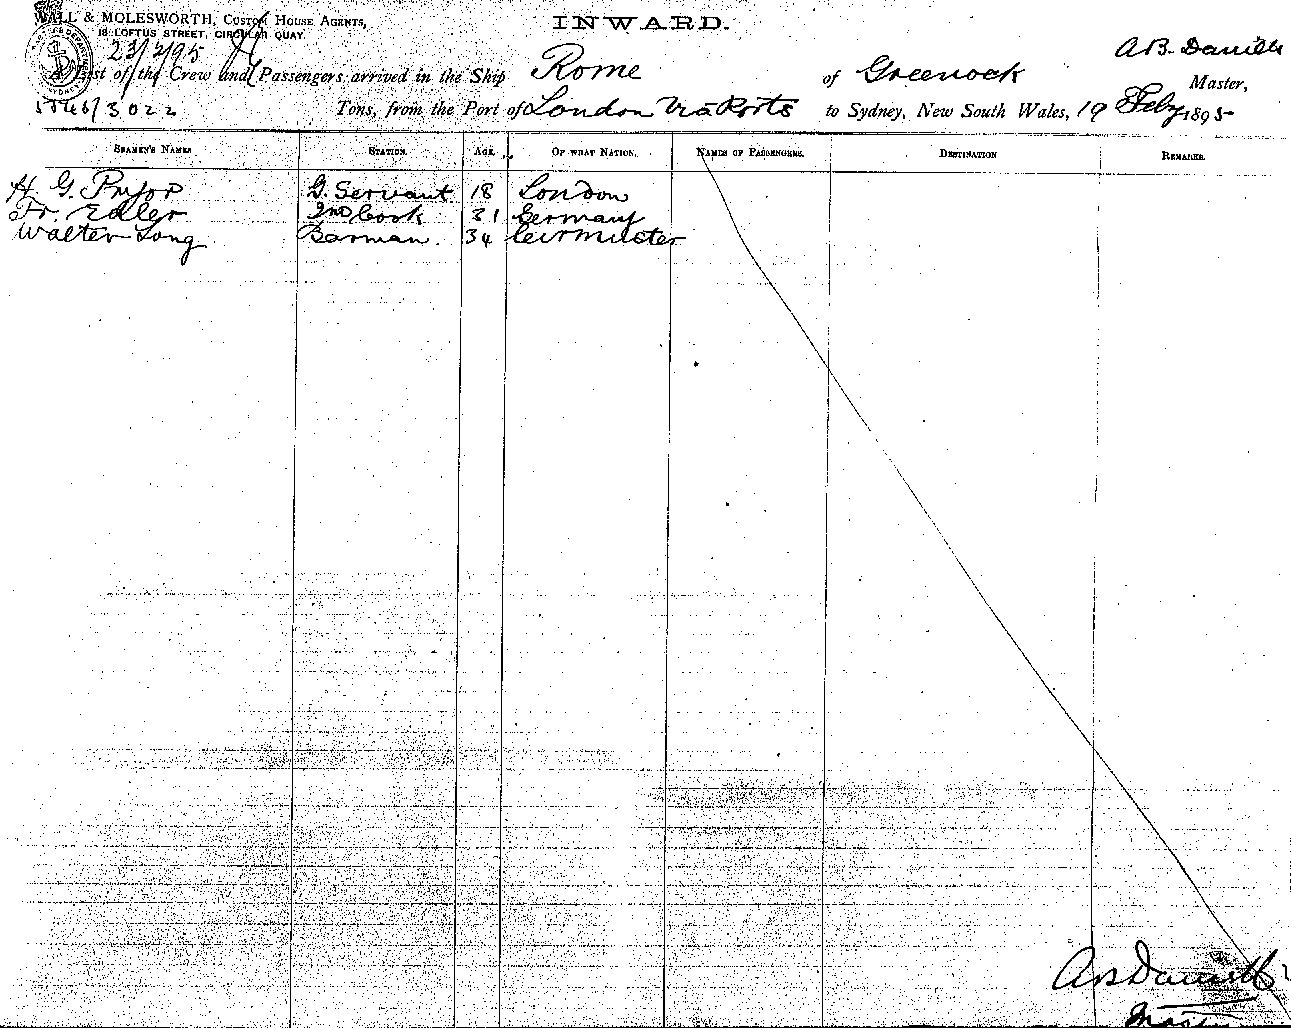 WALL & MOLESWORTH, CUSTOM HOUSE AGENTS,
18 LOFTUS STREET, CIRCULAR QUAY.
INWARD.
23/2/95
A. B. Daniell
A List of the Crew and Passengers arrived in the Ship Rome of Greenock Master,
/3022 Tons, from the Port of London Via Ports to Sydney, New South Wales, 19 Feby 1895
SEAMEN'S NAMES STATION. AGE. OF WHAT NATION. NAMES OF PASSENGERS. DESTINATION REMARKS.
H. G. Pryor G. Servant 18 London
Fr. Edler 2nd Cook 31 Germany
Walter Long Barman. 34
AB Daniell
Master